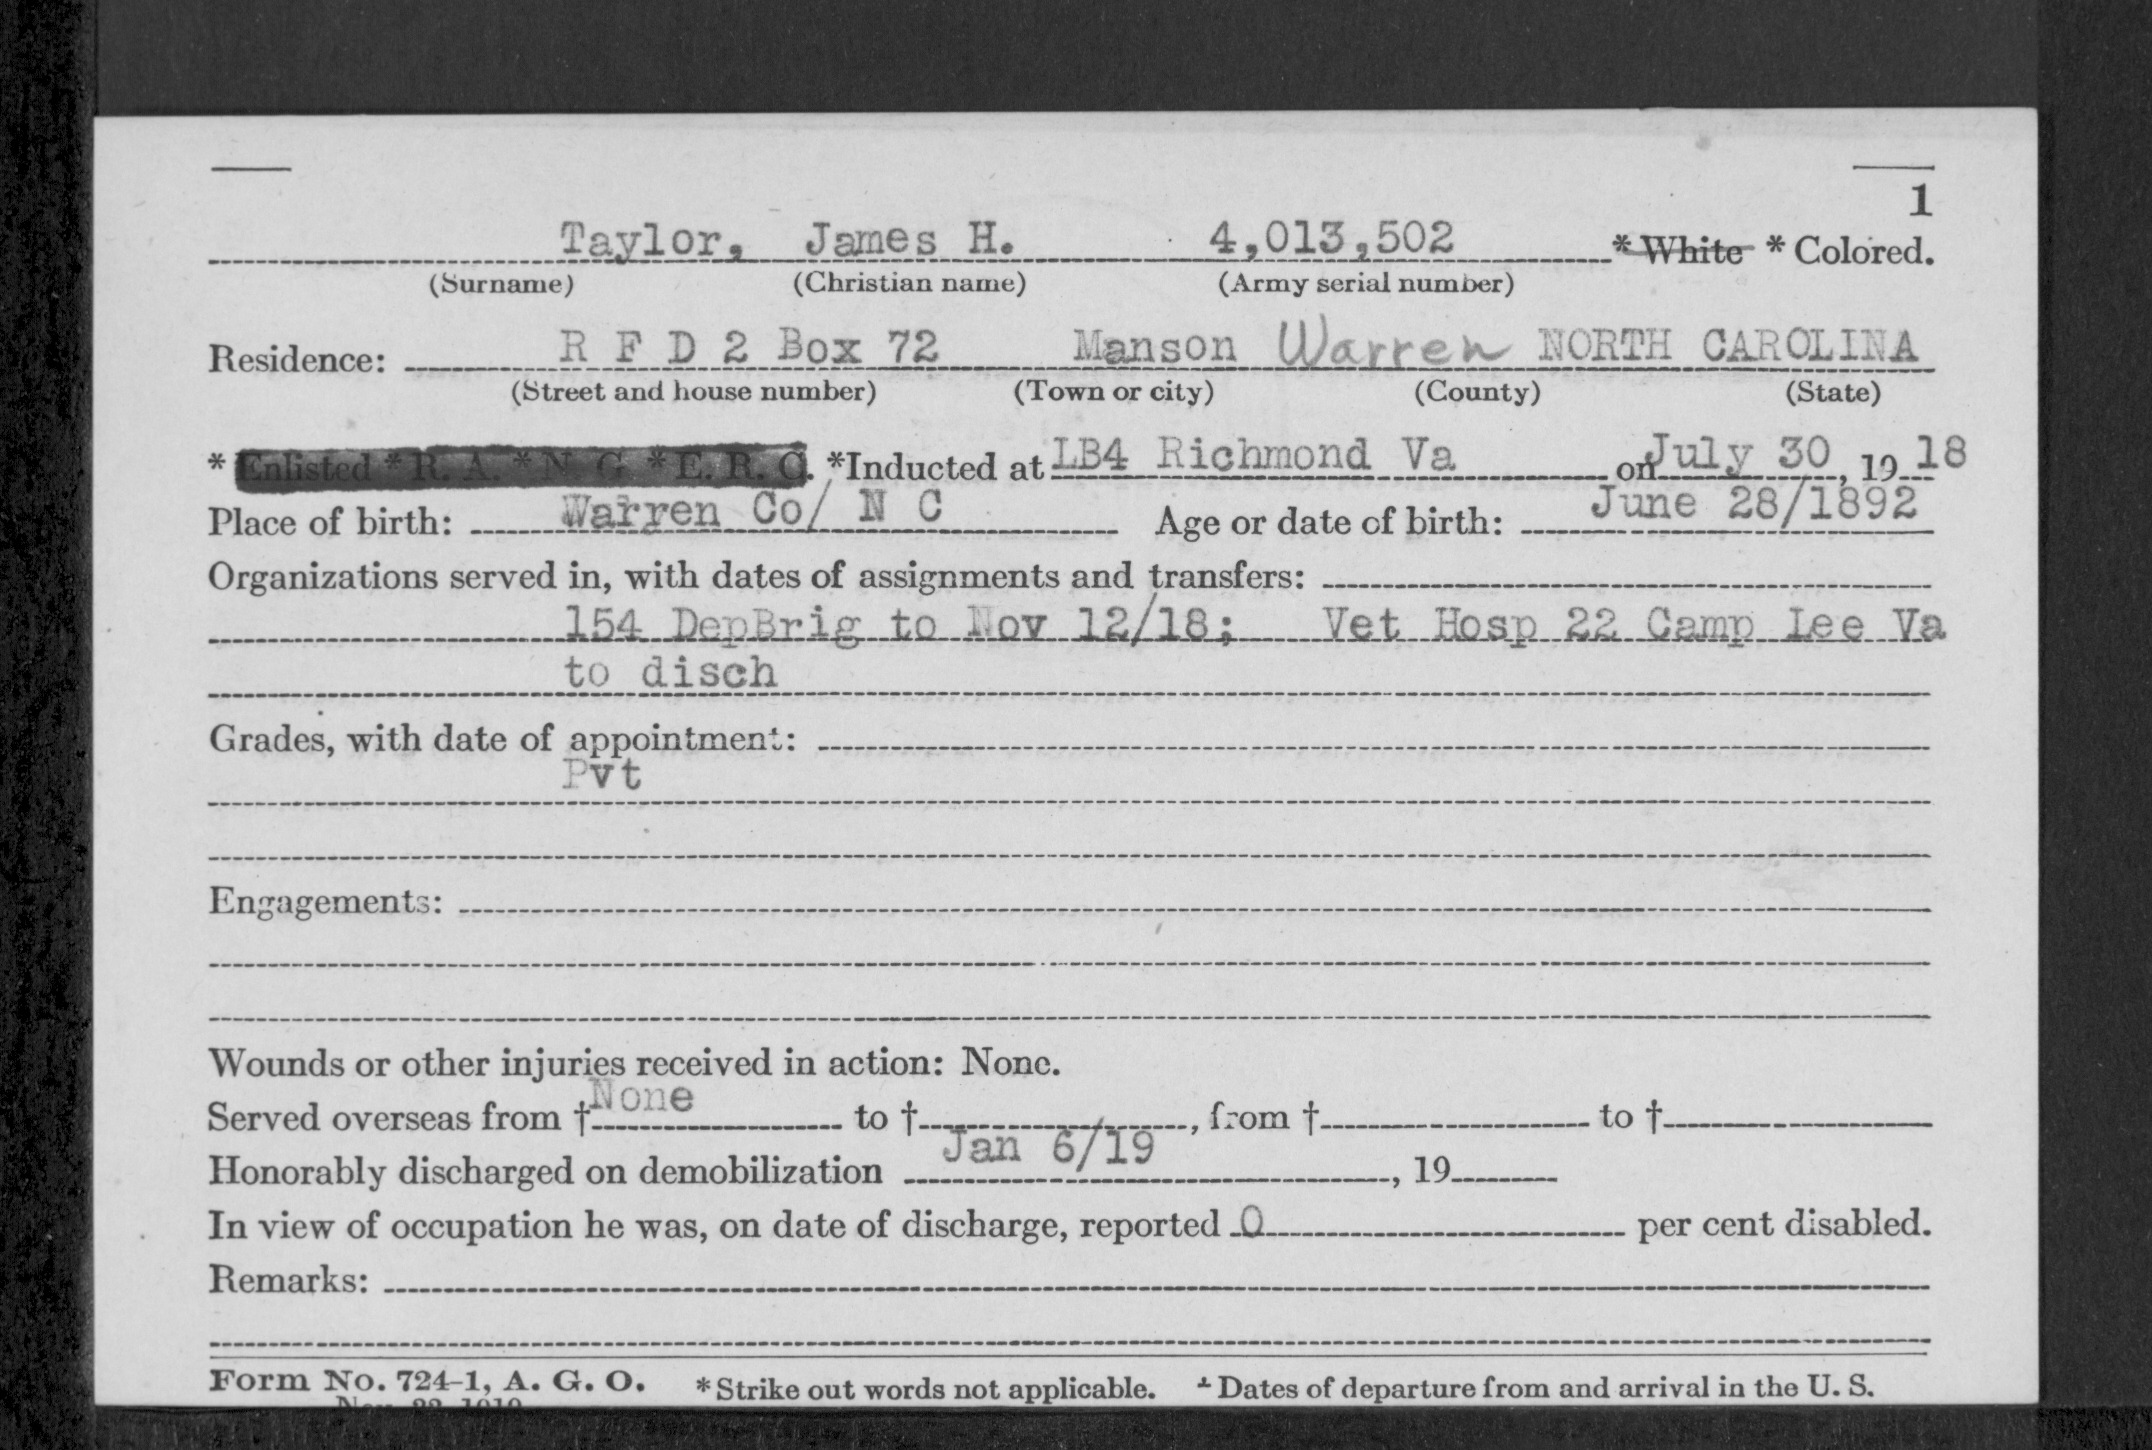 1
Taylor, James H. 4,013,502 * White * Colored.
(Surname) (Christian name) (Army serial number)
Residence: R F D 2 Box 72 Manson Warren NORTH CAROLINA
(Street and house number) (Town or city) (County) (State)
* Enlisted * R. A. * N. G. * E. R. C. *Inducted at LB4 Richmond Va on July 30, 19 18
Place of birth: Warren Co/ N C Age or date of birth: June 28/1892
Organizations served in, with dates of assignments and transfers:
154 DepBrig to Nov 12/18; Vet Hosp 22 Camp Lee Va
to disch
Grades, with date of appointment:
Pvt
Engagements:
Wounds or other injuries received in action: None.
Served overseas from † None to †, from † to †
Honorably discharged on demobilization Jan 6/19, 19
In view of occupation he was, on date of discharge, reported 0 per cent disabled.
Remarks:
Form No. 724-1, A. G. O. * Strike out words not applicable. † Dates of departure from and arrival in the U. S.